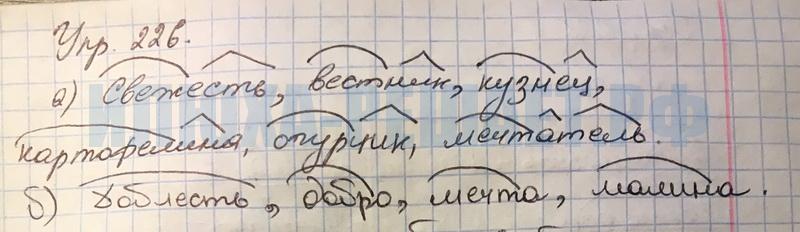 Упр. 226.
а) Свежесть, вестник, кузнец,
картофелина, огурчик, мечтатель.
б) Доблесть, добро, мечта, малина.